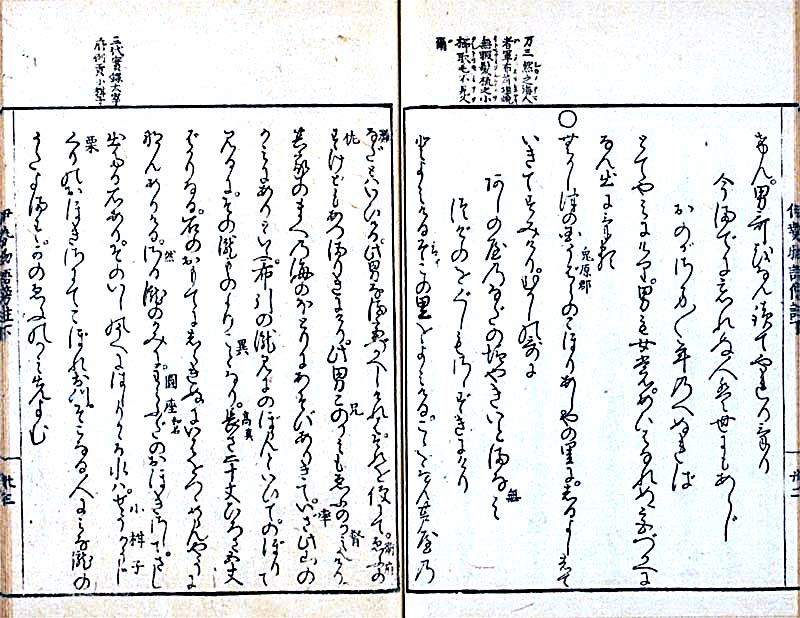 万三然之海人
者軍布苅塩焼
無暇髪梳之小
櫛取毛不見久
爾
けん。男哥よみてやれりけり
今までに忘れぬ人は世にもあらじ
おのがさま〳〵年のへぬれば
とてやみにけり。男も女もあひはなれぬ宮づかへに
なん出にける
〇むかし津の国うばらのこほりあしやの里にしるよしして
菟原郡
いきてすみけり。むかしの哥に
あしの屋のなだの塩やきいとまなみ
無
つげのをぐしもさゝずきにけり
とよみけるぞこの里をよみける。こゝをなん芦屋の
三代實録大宰
府例貢小柑子
なだとはいひける。此男なま宮づかへしければそれを便にて。ゑふの
衛府
すけどもあつまりきにけり。此男のこのかみもゑふのかみなりけり
佐 兄 督
其家のまへの海のほとりにあそびありきて。いざ此山の
率
かみにありといふ布引の滝見にのぼらんといひてのぼりて
見るに。その滝ものよりことなり。長さ二十丈ひろさ五丈
異 高真
ばかりなる。石のおもてにしらきぬにいはをつゝめらんやうに
なんありける。さる滝のかみにわらふだのおほきさして。さし
然 圓座 和名
出たる石あり。そのいしのうへにはしりかゝる水は。せうかうじ
小柑子
くりのおほきさにてこぼれおつ。そこなる人にみな滝の
栗
うたよます。かのゑふのかみまづよむ